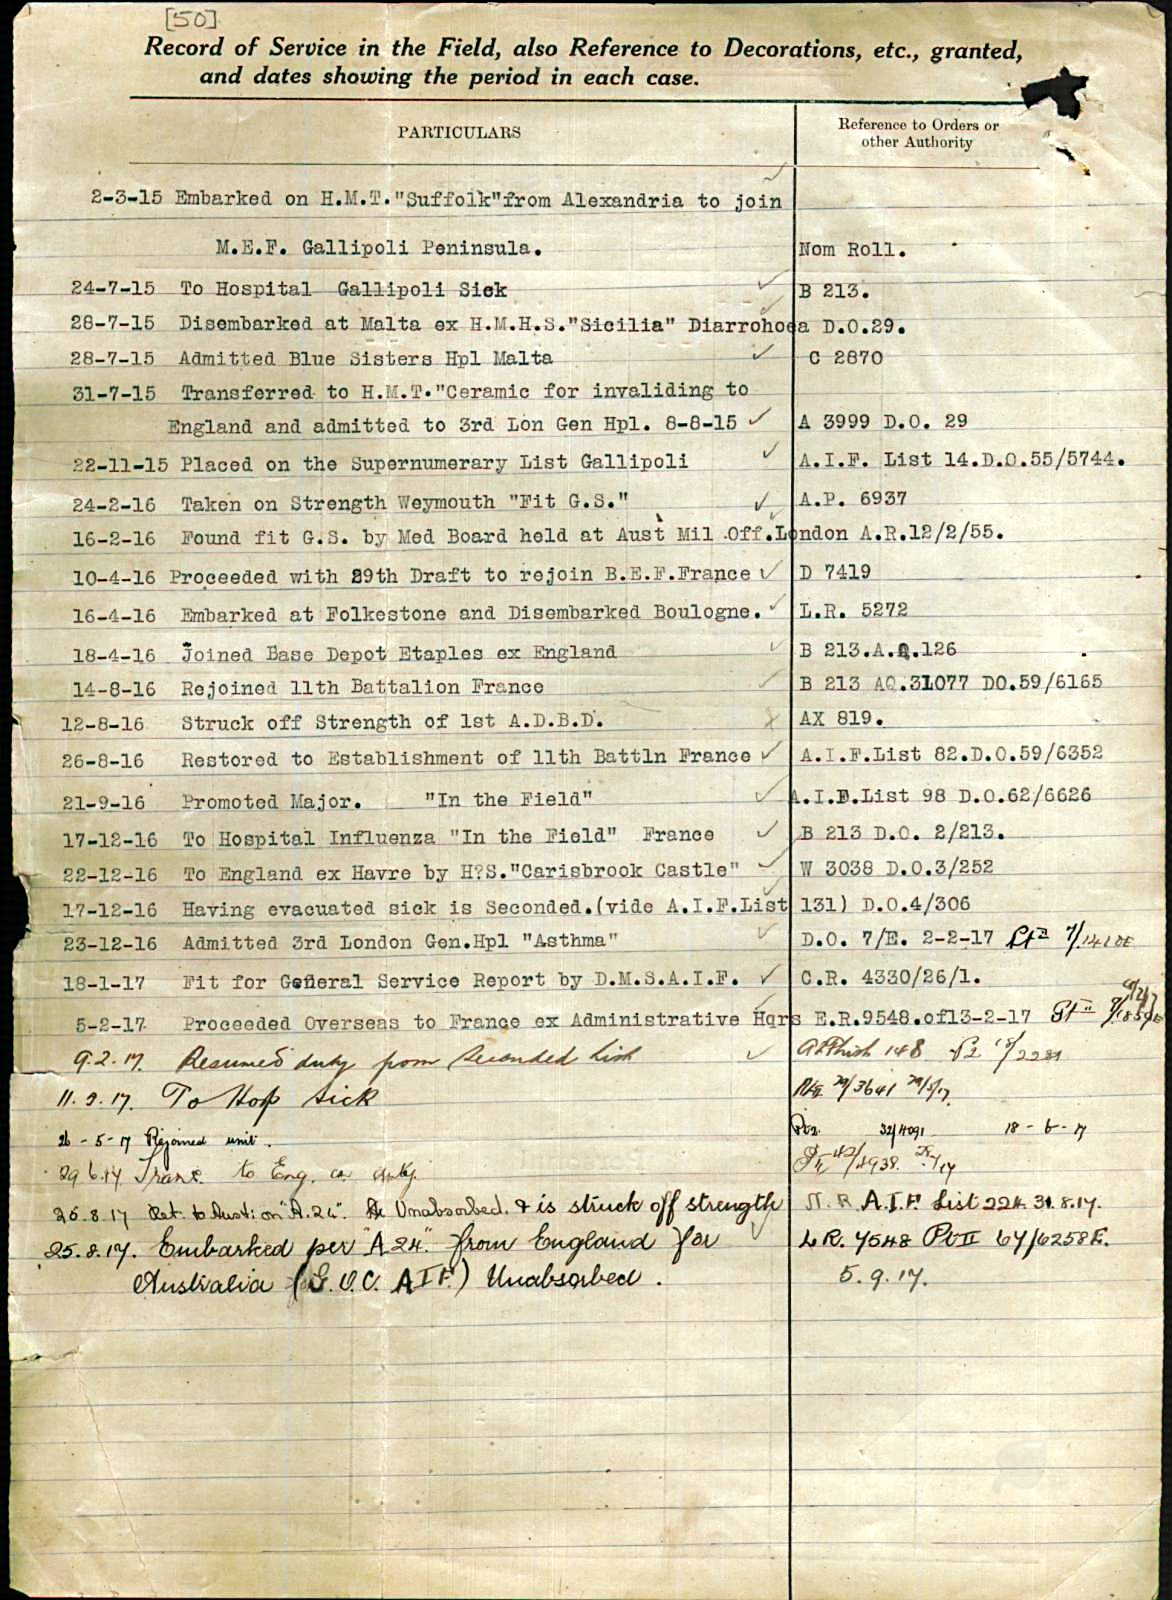 [50]
Record of Service in the Field, also Reference to Decorations, etc., granted,
and dates showing the period in each case.
PARTICULARS
Reference to Orders or
other Authority
2-3-15 Embarked on H.M.T."Suffolk"from Alexandria to join
M.E.F. Gallipoli Peninsula. Nom Roll.
24-7-15 To Hospital Gallipoli Sick B 213.
28-7-15 Disembarked at Malta ex H.M.H.S."Sicilia" Diarrohoea D.O.29.
28-7-15 Admitted Blue Sisters Hpl Malta C 2870
31-7-15 Transferred to H.M.T."Ceramic for invaliding to
England and admitted to 3rd Lon Gen Hpl. 8-8-15 A 3999 D.O. 29
22-11-15 Placed on the Supernumerary List Gallipoli A.I.F. List 14.D.O.55/5744.
24-2-16 Taken on Strength Weymouth "Fit G.S." A.P. 6937
16-2-16 Found fit G.S. by Med Board held at Aust Mil Off.London A.R.12/2/55.
10-4-16 Proceeded with 29th Draft to rejoin B.E.F.France D 7419
16-4-16 Embarked at Folkestone and Disembarked Boulogne. L.R. 5272
18-4-16 Joined Base Depot Etaples ex England B 213.A.Q.126
14-8-16 Rejoined 11th Battalion France B 213 AQ.31077 DO.59/6165
12-8-16 Struck off Strength of 1st A.D.B.D. AX 819.
26-8-16 Restored to Establishment of 11th Battln France A.I.F.List 82.D.O.59/6352
21-9-16 Promoted Major. "In the Field" A.I.F.List 98 D.O.62/6626
17-12-16 To Hospital Influenza "In the Field" France B 213 D.O. 2/213.
22-12-16 To England ex Havre by H?S."Carisbrook Castle" W 3038 D.O.3/252
17-12-16 Having evacuated sick is Seconded.(vide A.I.F.List 131) D.O.4/306
23-12-16 Admitted 3rd London Gen.Hpl "Asthma" D.O. 7/E. 2-2-17
18-1-17 Fit for General Service Report by D.M.S.A.I.F. C.R. 4330/26/1.
5-2-17 Proceeded Overseas to France ex Administrative Hqrs E.R.9548.of13-2-17
9.2.17. Resumed duty from Seconded List 148
11.3.17. To Hosp sick
26-5-17 Rejoined unit. 32/4091 18-6-17
29.6.17 Trans. to Eng.
25.8.17 Ret. to Aust: on "A.24". Unabsorbed. & is struck off strength A.I.F. List 224. 31.8.17.
25.8.17. Embarked per "A 24" from England for L.R. 7548 Pt II 67/6258E.
Australia (G.O.C. A I F.) Unabsorbed. 5.9.17.